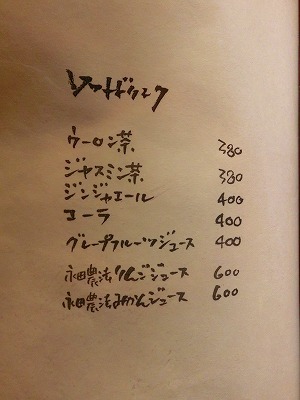 ソフトドリンク
ウーロン茶 380
ジャスミン茶 380
ジンジャエール 400
コーラ 400
グレープフルーツジュース 400
永田農法りんごジュース 600
永田農法みかんジュース 600